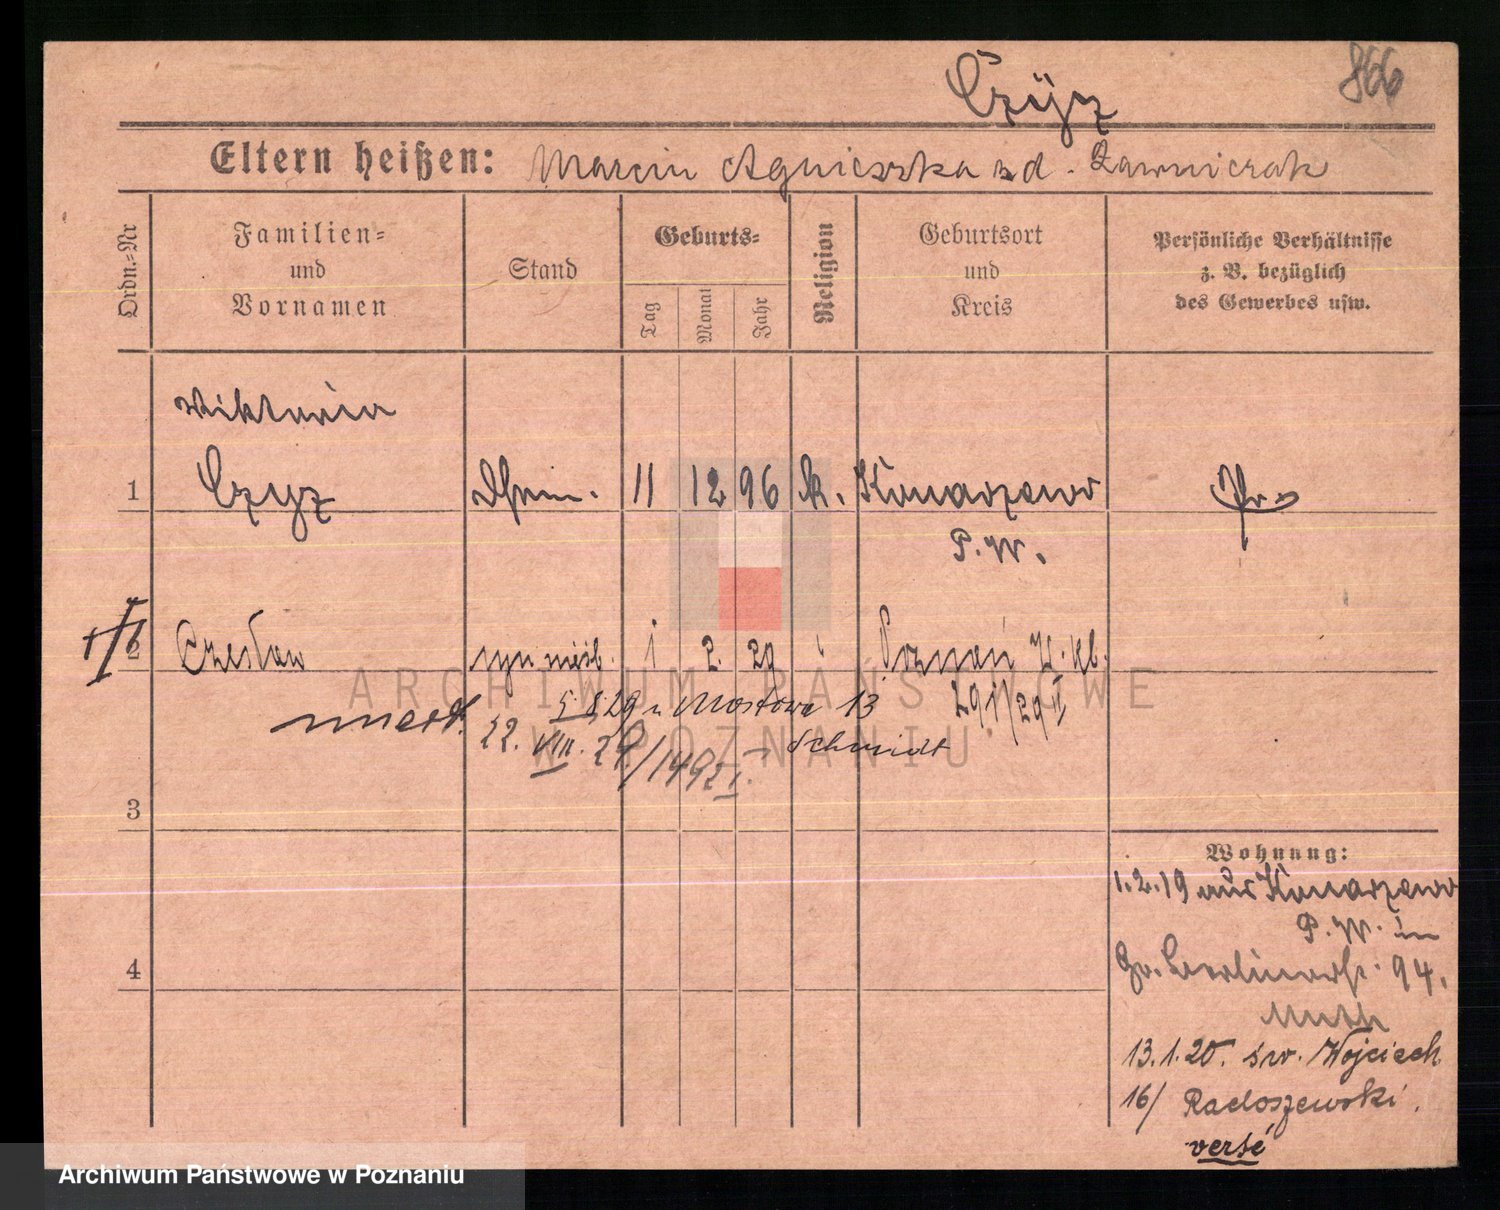 Czyż
866
Eltern heißen: Marcin Agnieszka z d. Ławniczak
Ordn.-Nr
Familien-
und
Vornamen
Stand
Geburts-
Tag
Monat
Jahr
Religion
Geburtsort
und
Kreis
Persönliche Verhältnisse
z. B. bezüglich
des Gewerbes usw.
Wiktoria
1 Czyz 11 12 96 k. Konarzewo Pr.
P. W.
2 Czesław syn nieśl. 1 2. 29 Poznań
5.8.29 u Mostowa 13
22. VIII. 29/1492 I.
Schmidt
ARCHIWUM PAŃSTWOWE
W POZNANIU
3
4
Wohnung:
1.2.19 aus Konarzewo
P. W. in
Gr. Berlinerstr. 94.
Muth
13.1.20. św. Wojciech
16/ Radoszewski.
verté
Archiwum Państwowe w Poznaniu